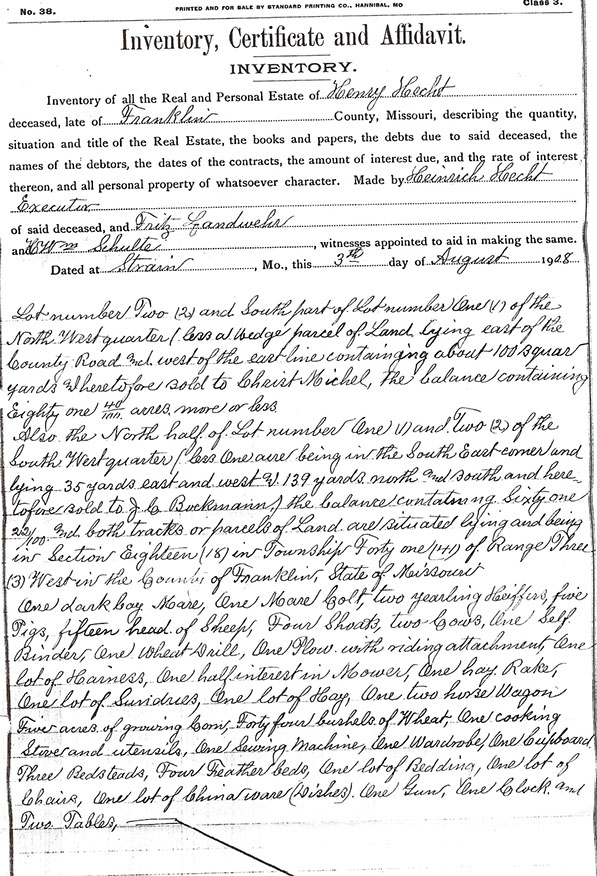 No. 38.
PRINTED AND FOR SALE BY STANDARD PRINTING CO., HANNIBAL, MO
Class 3.
Inventory, Certificate and Affidavit.
INVENTORY.
Inventory of all the Real and Personal Estate of Henry Hecht
deceased, late of Franklin County, Missouri, describing the quantity,
situation and title of the Real Estate, the books and papers, the debts due to said deceased, the
names of the debtors, the dates of the contracts, the amount of interest due, and the rate of interest
thereon, and all personal property of whatsoever character. Made by Heinrich Hecht
Executor
of said deceased, and Fritz Landwehr
and Wm Schulte, witnesses appointed to aid in making the same.
Dated at Strain, Mo., this 3rd day of August 1908
Lot number Two (2) and South part of Lot number One (1) of the
North West quarter (less a Wedge parcel of Land lying east of the
County Road and west of the east line containing about 100 squar
yards heretofore sold to Christ Michel, the balance containing
Eighty one 40/100 acres more or less
Also the North half of Lot number One (1) and Two (2) of the
South West quarter (less One acre being in the South East corner and
lying 35 yards east and west & 139 yards north and South and here-
tofore sold to J. C. Bockmann) the balance containing Sixty one
22/100 and both tracks or parcels of Land are situated lying and being
in Section Eighteen (18) in Township Forty one (41) of Range Three
(3) West in the County of Franklin, State of Meissouri
One dark bay Mare, One Mare Colt, two yearling Heiffers, five
Pigs, fifteen head of Sheep, Four Shoats, two Cows, One Self
Binder, One Wheat Drill, One Plow with riding attachment, One
lot of Harness, One half interest in Mower, One hay Rake,
One lot of Sundries, One lot of Hay, One two horse Wagon
Five acres of growing Corn, Forty four bushels of Wheat, One cooking
Stove and utensils, One Sewing Machine, One Wardrobe, One Cupboard
Three Bedsteads, Four Feather beds, One lot of Bedding, One lot of
Chairs, One lot of China ware (Dishes). One Gun, One Clock and
Two Tables,